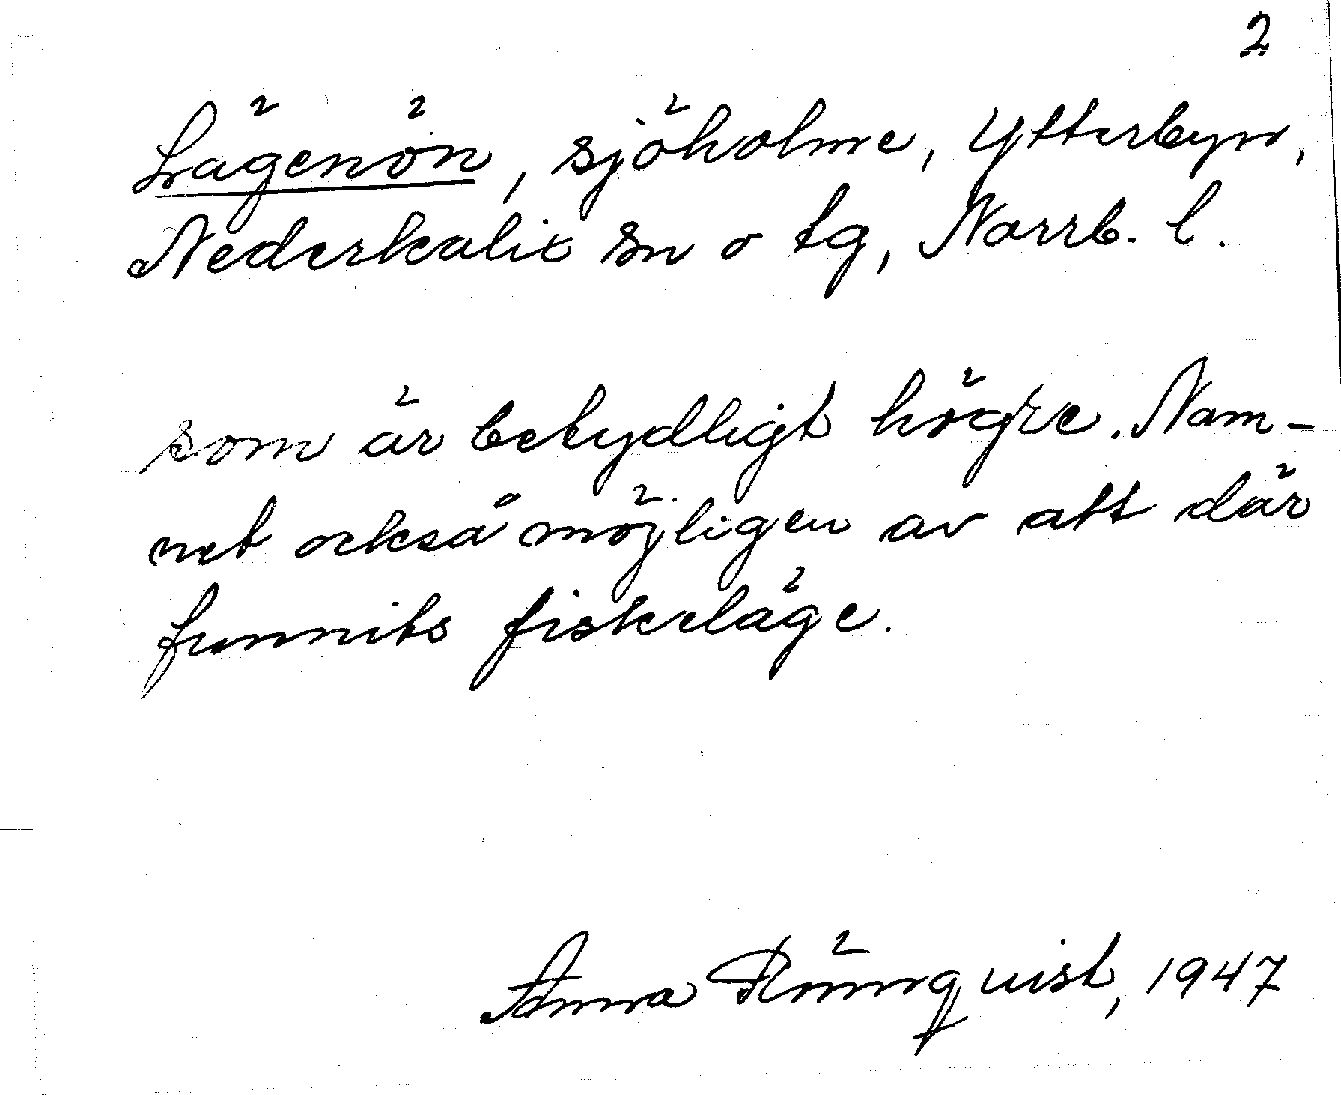 2
Lägenön, sjöholme, Ytterbyn,
Nederkalix sn o tg, Norrb. l.
som är betydligt högre. Nam-
net också möjligen av att där
funnits fiskeläge.
Anna Rönnquist, 1947